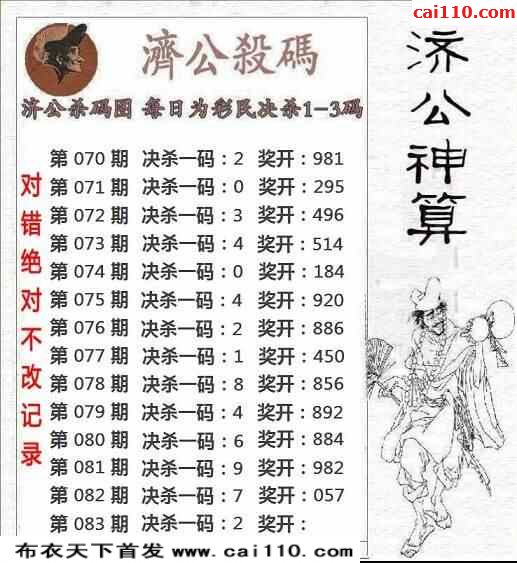 cai110.com
濟公殺碼
济公杀码图 每日为彩民决杀1-3码
济公神算
对错绝对不改记录
第 070 期 决杀一码：2 奖开：981
第 071 期 决杀一码：0 奖开：295
第 072 期 决杀一码：3 奖开：496
第 073 期 决杀一码：4 奖开：514
第 074 期 决杀一码：0 奖开：184
第 075 期 决杀一码：4 奖开：920
第 076 期 决杀一码：2 奖开：886
第 077 期 决杀一码：1 奖开：450
第 078 期 决杀一码：8 奖开：856
第 079 期 决杀一码：4 奖开：892
第 080 期 决杀一码：6 奖开：884
第 081 期 决杀一码：9 奖开：982
第 082 期 决杀一码：7 奖开：057
第 083 期 决杀一码：2 奖开：
布衣天下首发 www.cai110.com